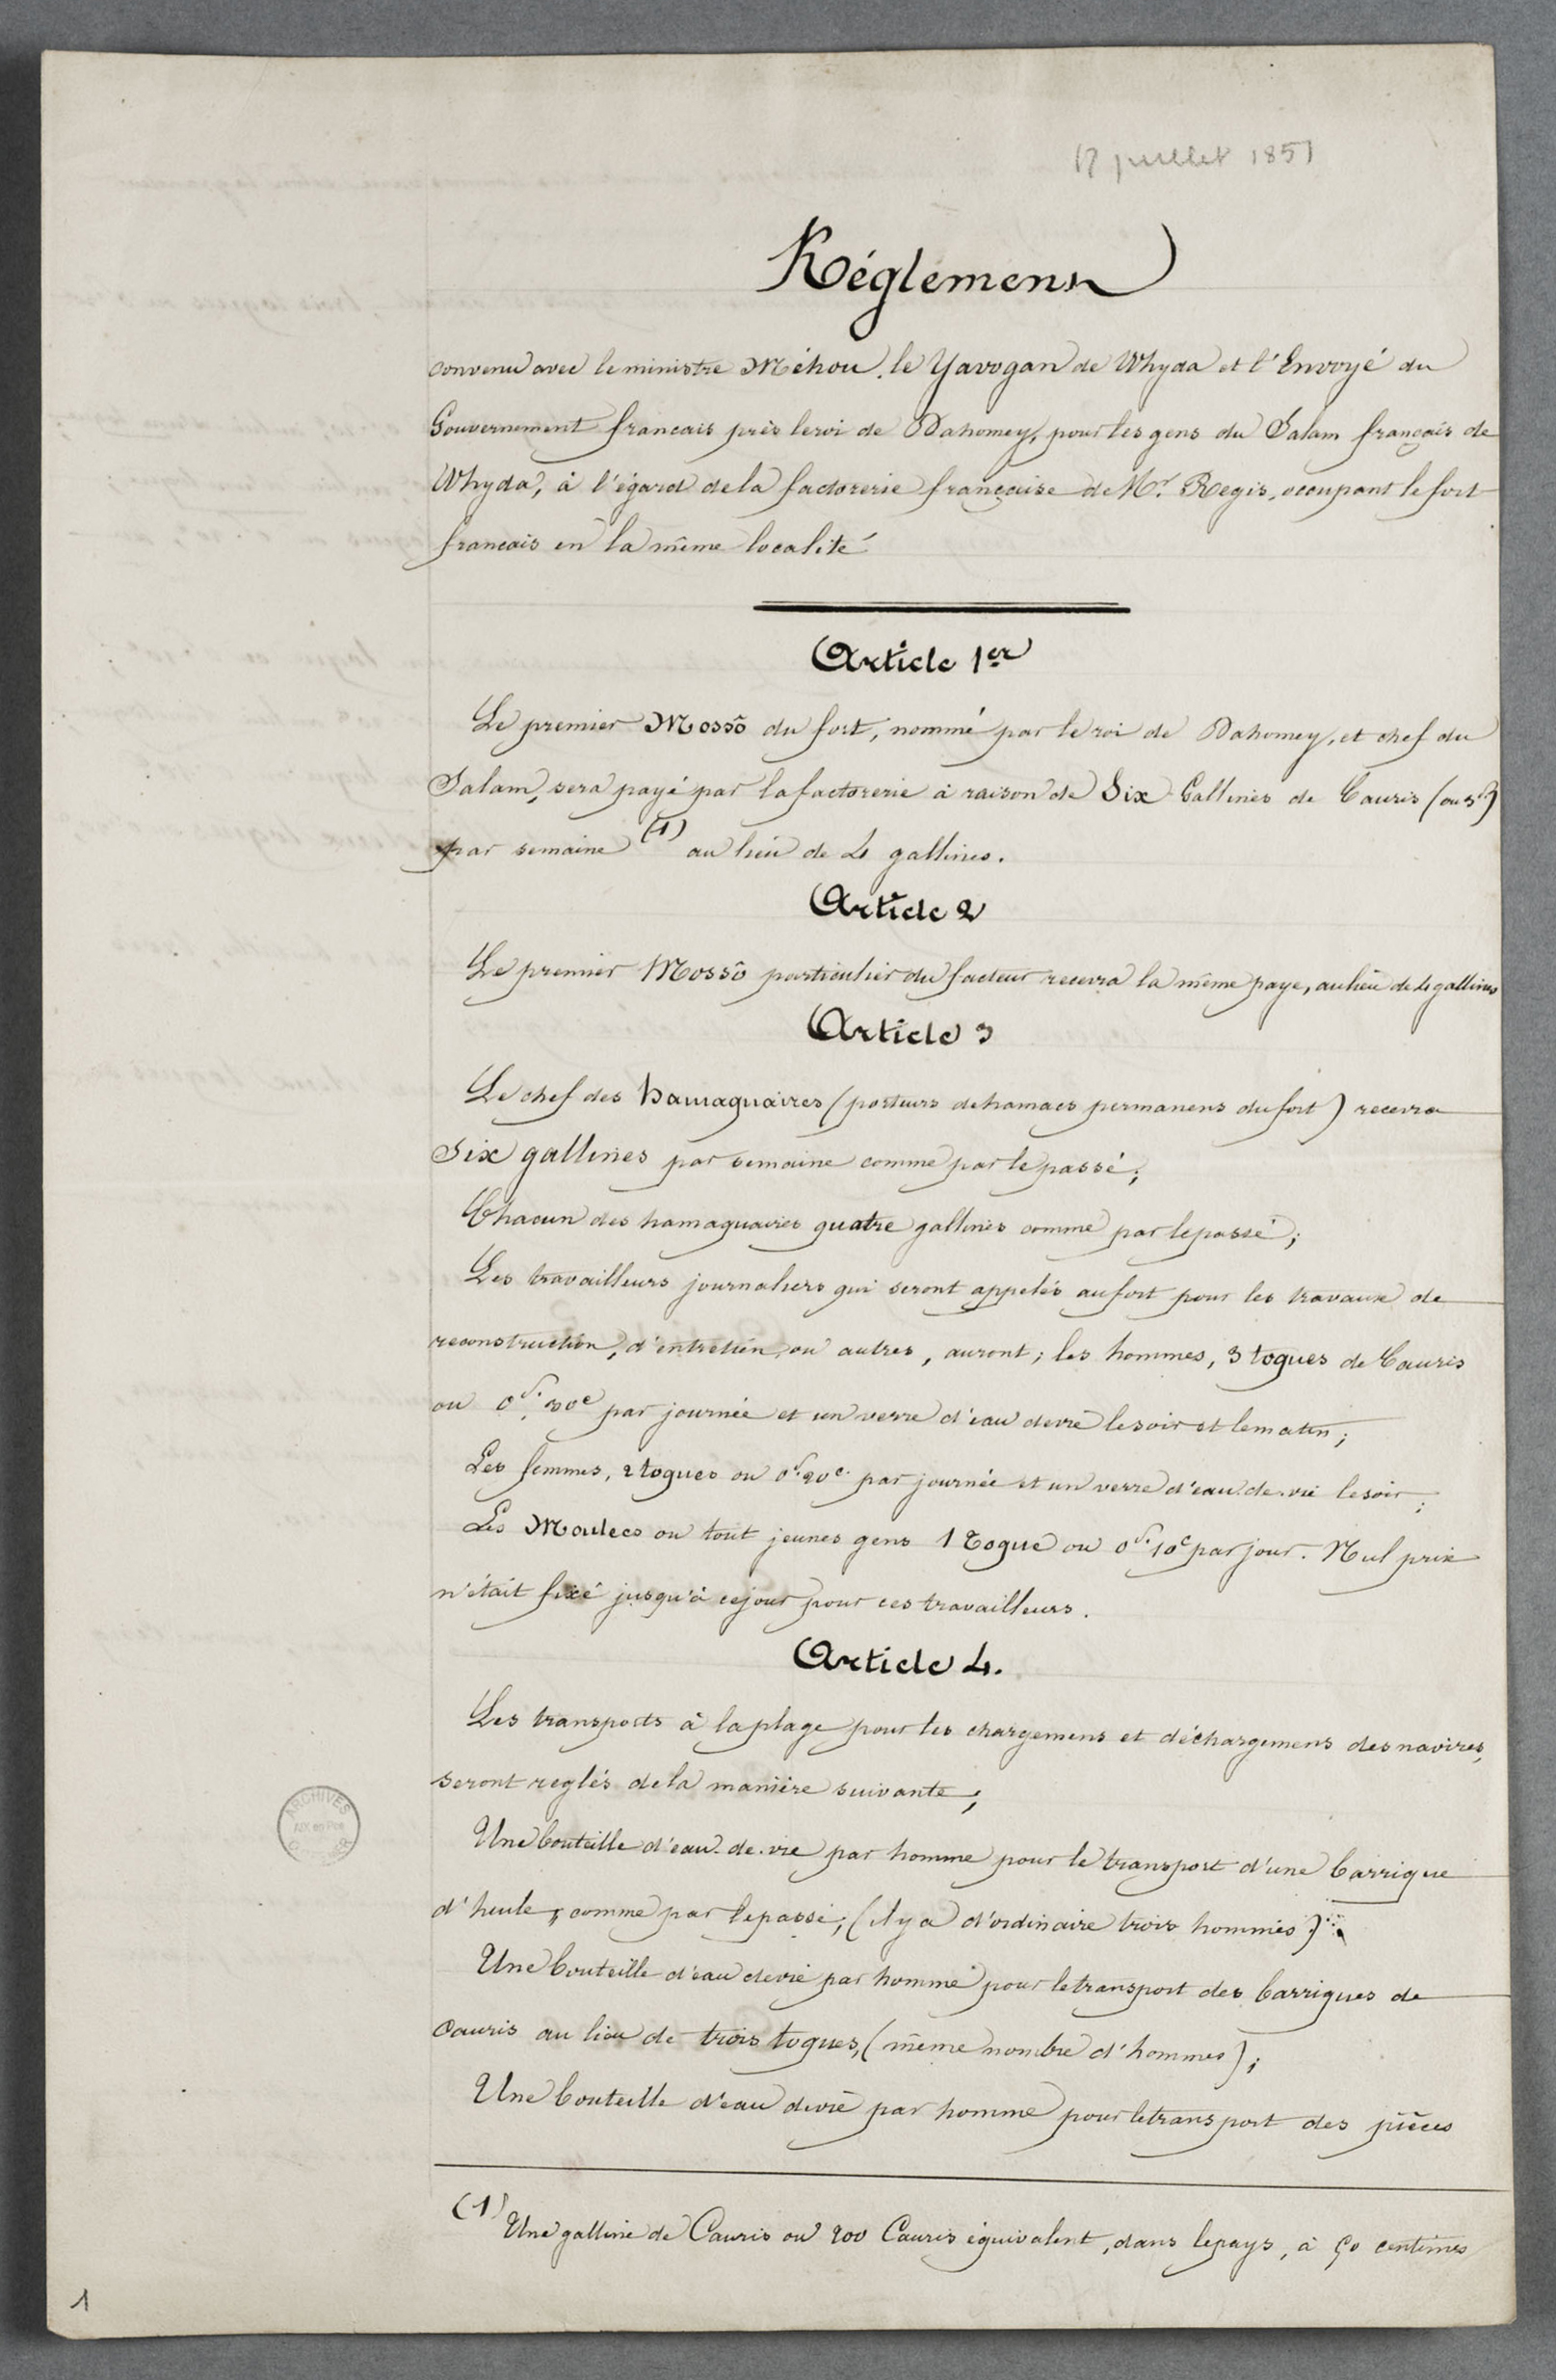 (7 juillet 1851)
Réglement
convenu avec le ministre Méhou, le Yavogan de Whyda et l'Envoyé du
Gouvernement francais près le roi de Dahomey, pour les gens du Salam français de
Whyda, à l'égard de la factorerie française de Mr. Regis, occupant le fort
francais en la même localité
Article 1er
Le premier Mossô du fort, nommé par le roi de Dahomey, et chef du
Salam, sera payé par la factorerie à raison de Six Gallines de Cauris (ou 3f)
par semaine (1) au lieu de 4 gallines.
Article 2
Le premier Mossô particulier du facteur recevra la même paye, au lieu de 4 gallines
Article 3
Le chef des hamaquaires (porteurs de hamacs permanens du fort) recevra
Six gallines par semaine comme par le passé;
Chacun des hamaquaires quatre gallines comme par le passé;
Les travailleurs journaliers qui seront appelés au fort pour les travaux de
reconstruction, d'entretien, ou autres, auront; les hommes, 3 toques de Cauris
ou 0f. 30c par journée et un verre d'eau de vie le soir et le matin;
Les femmes, 2 toques ou 0f. 20c. par journée et un verre d'eau.de.vie le soir;
Les Moulecs ou tout jeunes gens 1 Toque ou 0f. 10c par jour. Nul prix
n'était fixé jusqu'à ce jour pour ces travailleurs.
Article 4.
Les transports à la plage pour les chargemens et déchargemens des navires,
seront reglés de la manière suivante;
Une bouteille d'eau.de.vie par homme pour le transport d'une barrique
d'huile, comme par le passé; (il y a d'ordinaire trois hommes)
Une bouteille d'eau de vie par homme pour le transport des barriques de
Cauris au lieu de trois toques, (même nombre d'hommes);
Une bouteille d'eau de vie par homme pour le transport des pièces
(1) Une galline de Cauris ou 200 Cauris équivalent, dans le pays, à 50 centimes
ARCHIVES
1